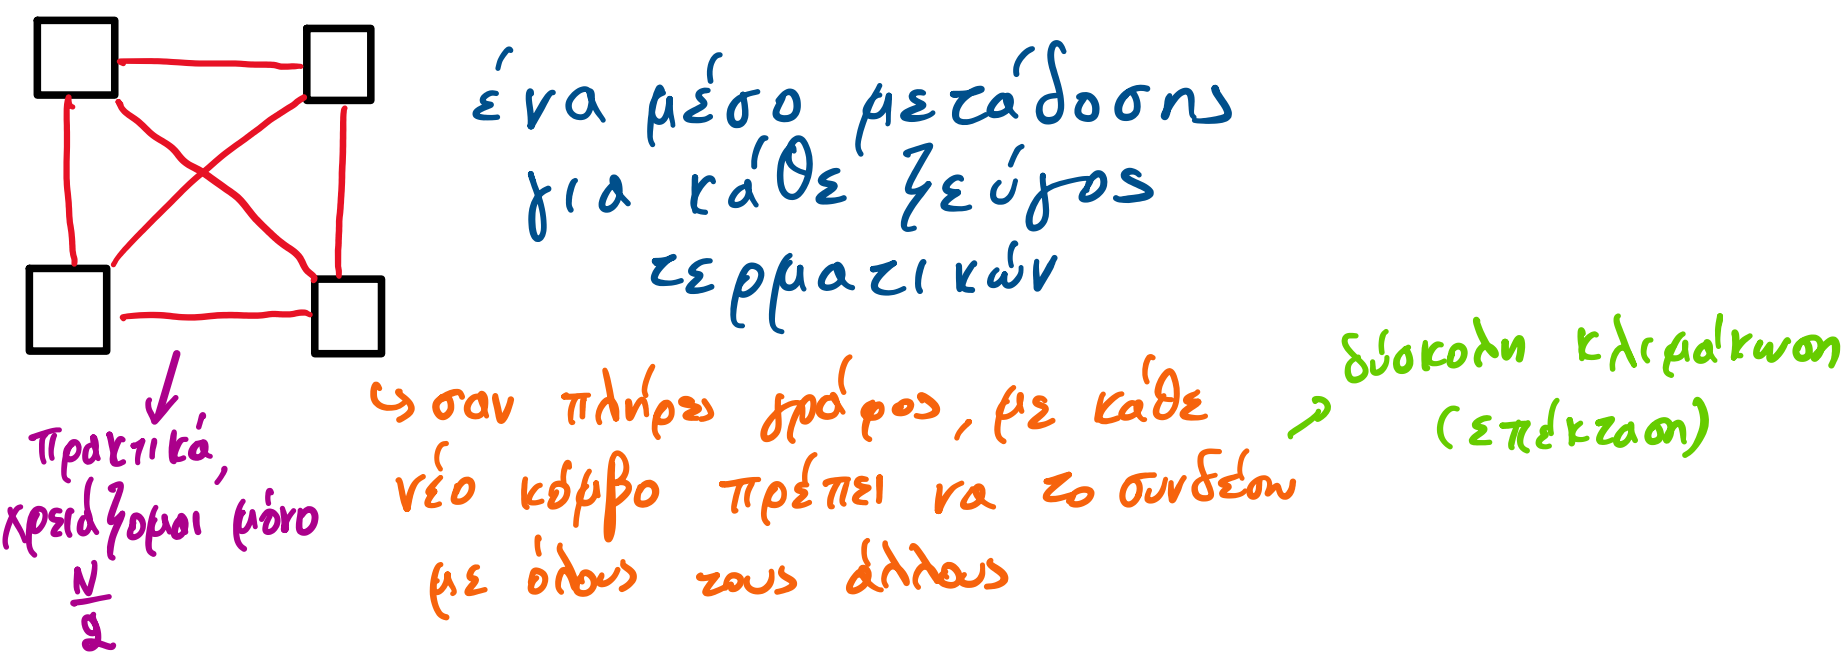 ένα μέσο μετάδοσης
για κάθε ζεύγος
τερματικών
σαν πλήρες γράφος, με κάθε
νέο κόμβο πρέπει να το συνδέσω
με όλους τους άλλους
δύσκολη κλιμάκωση
(επέκταση)
πρακτικά,
χρειάζομαι μόνο
N/2